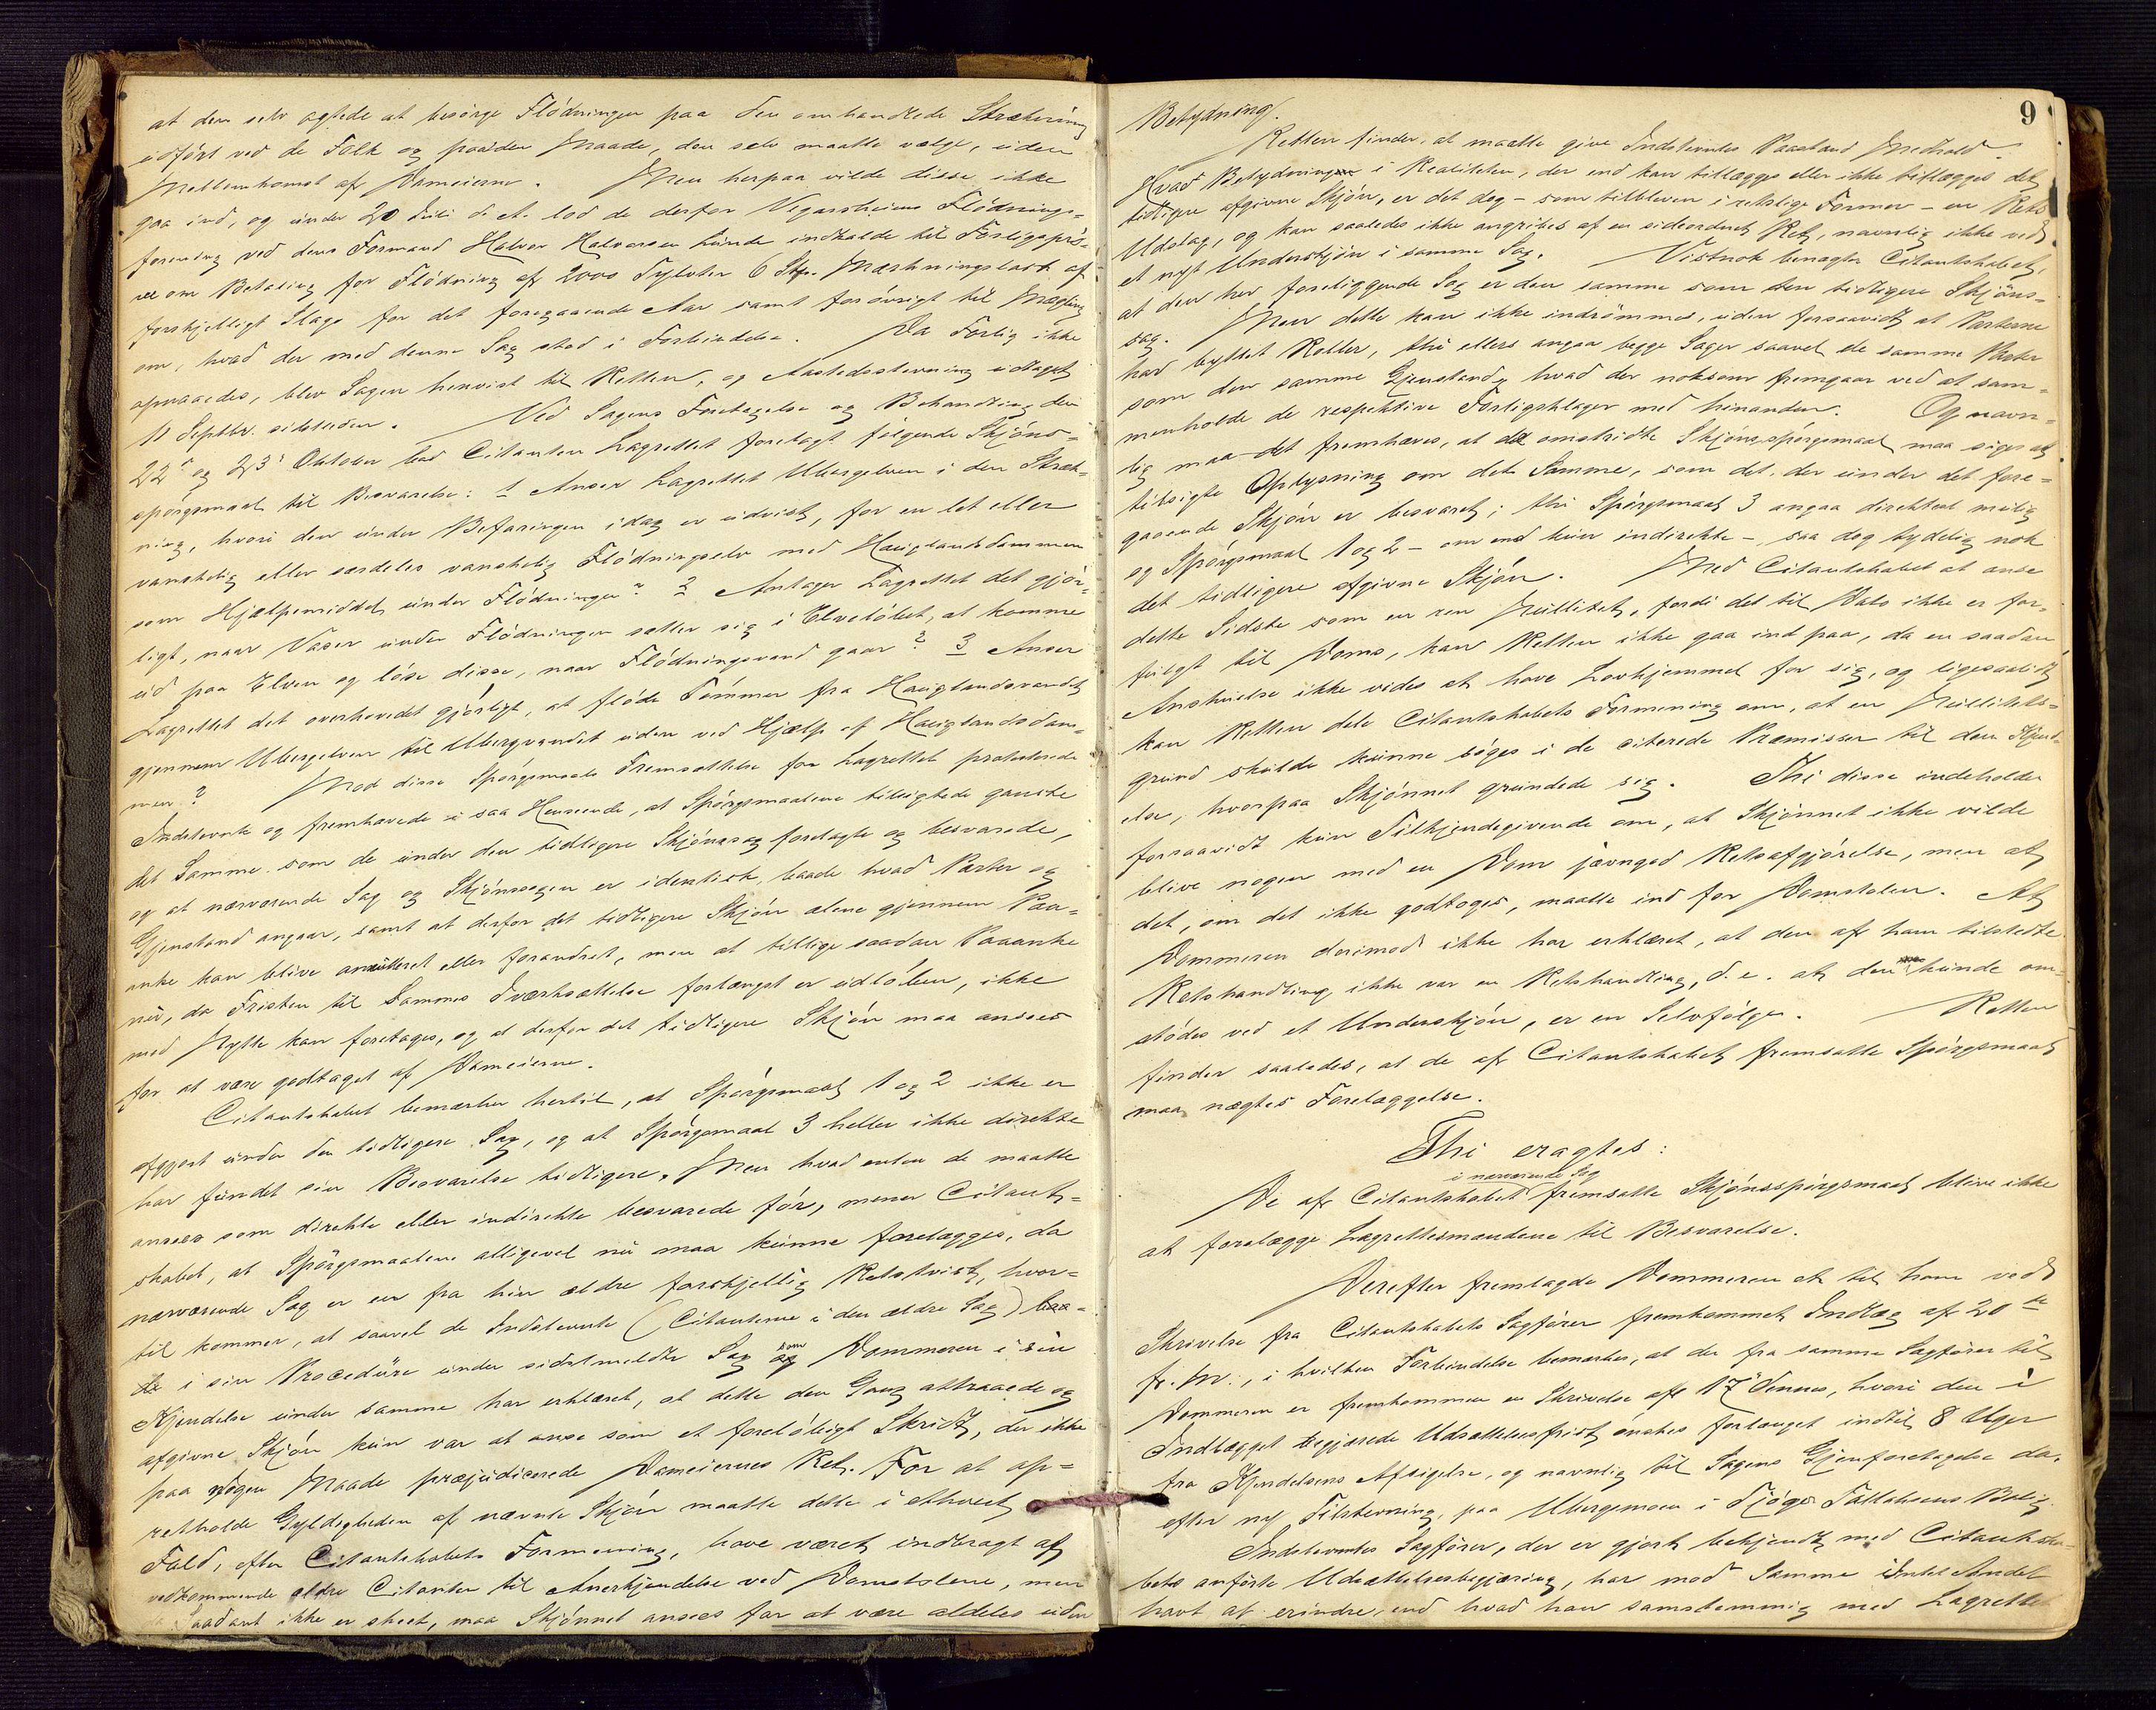 at den selv agtede at besørge Flödningen paa den omhandlede Strækning
udført ved de Folk og paa den Maade, den selv maatte vælge, uden
Mellemkomst af Dameierne. Men herpaa vilde disse ikke
gaa ind, og under 20 Juli d. A. lod de derfor Vegarsheiens Flödnings-
forening ved dens Formand Halvor Halvorsen Lunde indkalde til Forligsprö-
ve om Betaling for Flödning af 2000 Tylvter 6 Stk. Mærkningslast af
forskjelligt Slags for det foregaaende Aar samt forövrigt til Mægling
om, hvad der med denne Sag stod i Forbindelse. Da Forlig ikke
opnaaedes, blev Sagen henvist til Retten, og Aastedsstevning udtaget
11 Septbr. sidstleden. Ved Sagens Foretagelse og Behandling den
22de og 23de Oktober bad Citanten Lagrettet forelagt følgende Skjöns-
spörgsmaal til Besvarelse: 1 Anser Lagrettet Ubergselven i den Stræk-
ning, hvori den under Befaringen idag er udvist, for en let eller
vanskelig eller særdeles vanskelig Flödningselv med Hauglandsdammen
som Hjælpemiddel under Flödningen? 2 Antager Lagrettet det gjör-
ligt, naar Vaser under Flödningen sætter sig i Elvelöbet, at komme
ud paa Elven og löse disse, naar Flödningsvand gaar? 3 Anser
Lagrettet det overhovedet gjörligt, at flöde Tömmer fra Hauglandsvandet
gjennem Ubergselven til Ubergvandet uden ved Hjælp af Hauglandsdam-
men? Mod disse Spörgsmaals Fremsættelse for Lagrettet protesterede
Indstevnte og fremhævede i saa Henseende, at Spörgsmaalene tilsigtede ganske
det Samme som de under den tidligere Skjönssag forelagte og besvarede,
og at nærværende Sag og Skjönssagen er identisk, baade hvad Parter og
Gjenstand angaar, samt at derfor det tidligere Skjön alene gjennem Paa-
anke kan blive annulleret eller forandret, men at tillige saadan Paaanke
nu, da Fristen til Sammes Iværksættelse forlængst er udlöben, ikke
med Nytte kan foretages, og at derfor det tidligere Skjön maa ansees
for at være godtaget af Dameierne.
Citantskabet bemærker hertil, at Spörgsmaal 1 og 2 ikke er
afgjort under den tidligere Sag, og at Spörgsmaal 3 heller ikke direkte
har fundet sin Besvarelse tidligere. Men hvad enten de maatte
ansees som direkte eller indirekte besvarede för, mener Citant-
skabet, at Spörgsmaalene alligevel nu maa kunne forelægges, da
nærværende Sag er en fra hin ældre forskjellig Retstvist, hvor-
til kommer, at saavel de Indstevnte (Citanterne i den ældre Sag)
i sin Procedüre under sidstmeldte Sag som Dommeren i sin
Kjendelse under samme har erklæret, at dette den Gang attraaede og
afgivne Skjön kun var at anse som et foreløbigt Skridt, der ikke
paa nogen Maade præjudicerede Dameiernes Ret. For at op-
retholde Gyldigheden af nævnte Skjön maatte dette i ethvert
Fald, efter Citantskabets Formening, have været indbragt af
vedkommende ældre Citanter til Anerkjendelse ved Domstolene, men
da Saadant ikke er skeet, maa Skjönnet ansees for at være aldeles uden
9
Betydning.
Retten finder, at maatte give Indstevntes Paastand Medhold.
Hvad Betydning i Realiteten, der end kan tillægges eller ikke tillægges det
tidligere afgivne Skjön, er det dog - som tilbleven i retslige Former - en Rets
Udslag, og kan saaledes ikke angribes af en sideordnet Ret, navnlig ikke ved
et nyt Underskjön i samme Sag. Vistnok benægter Citantskabet,
at den her foreliggende Sag er den samme som den tidligere Skjöns-
sag. Men dette kan ikke indrömmes, uden forsaavidt at Parterne
har byttet Roller, thi ellers angaar begge Sager saavel de samme Parter
som den samme Gjenstand, hvad der noksom fremgaar ved at sam-
menholde de respektive Forligsklager med hinanden. Og navn-
lig maa det fremhæves, at det omstridte Skjönsspörgsmaal maa siges at
tilsigte Oplysning om det Samme, som det, der under det fore-
gaaende Skjön er besvaret; thi Spörgsmaal 3 angaar direktest mulig
og Spörgsmaal 1 og 2 - om end kun indirekte - saa dog tydelig nok
det tidligere afgivne Skjön. Med Citantskabet at anse
dette Sidste som en ren Nullitet, fordi det til Dato ikke er for-
fulgt til Doms, kan Retten ikke gaa ind paa, da en saadan
Anskuelse ikke vides at have Lovhjemmel for sig, og ligesaalidt
kan Retten dele Citantskabets Formening om, at en Nullitets-
grund skulde kunne söges i de citerede Præmisser til den Kjend-
else, hvorpaa Skjönnet grundede sig. Thi disse indeholder
forsaavidt kun Tilkjendegivende om, at Skjönnet ikke vilde
blive nogen med en Dom jævngod Retsafgjörelse, men at
det, om det ikke godtoges, maatte ind for Domstolen. At
Dommeren derimod ikke har erklæret, at den af ham tilstedte
Retshandling ikke var en Retshandling, d. e. at den kunde om-
stödes ved et Underskjön, er en Selvfölge. Retten
finder saaledes, at de af Citantskabet fremsatte Spörgsmaal
maa nægtes Forelæggelse.
Thi eragtes:
i nærværende Sag
De af Citantskabet fremsatte Skjönsspörgsmaal blive ikke
at forelægge Lagrettesmændene til Besvarelse.
Derefter fremlagde Dommeren et til ham ved
Skrivelse fra Citantskabets Sagförer fremkommet Indlæg af 20de
f. M., i hvilken Forbindelse bemærkes, at der fra samme Sagförer til
Dommeren er fremkommen en Skrivelse af 17de Dennes, hvori den i
Indlægget begjærede Udsættelsesfrist önskes forlænget indtil 8 Uger
fra Kjendelsens Afsigelse, og navnlig til Sagens Gjenforetagelse da,
efter ny Tilstevning, paa Ubergsmoen i Bolig.
Indstevntes Sagförer, der er gjort bekjendt med Citantska-
bets anförte Udsættelsesbegjæring, har mod Samme Intet Andet
havt at erindre, end hvad han samstemmig med Lagrettet